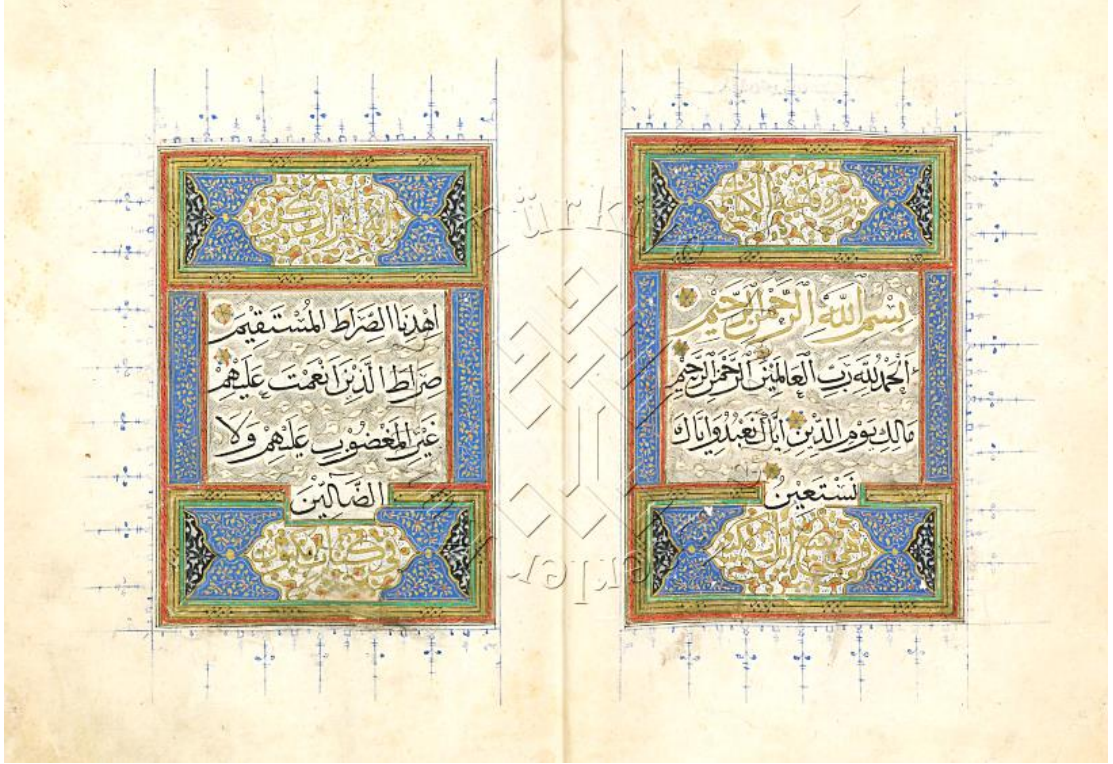 سورة فاتحة الكتاب
بِسْمِ اللَّهِ الرَّحْمٰنِ الرَّحِيمِ
اَلْحَمْدُ لِلَّهِ رَبِّ الْعَالَمِينَ الرَّحْمٰنِ الرَّحِيمِ
مَالِكِ يَوْمِ الدِّينِ اِيَّاكَ نَعْبُدُ وَاِيَّاكَ
نَسْتَعِينُ
انه لقران كريم
اِهْدِنَا الصِّرَاطَ الْمُسْتَقِيمَ
صِرَاطَ الَّذِينَ اَنْعَمْتَ عَلَيْهِمْ
غَيْرِ الْمَغْضُوبِ عَلَيْهِمْ وَلَا
الضَّالِّينَ
في كتاب مكنون